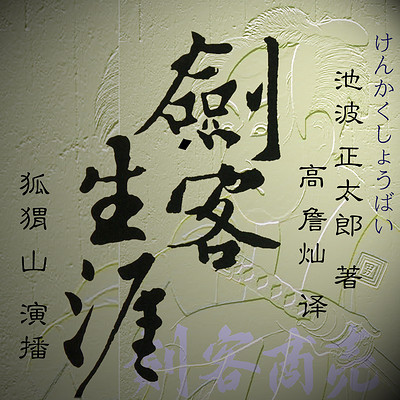 けんかくしょうばい
池波 正太郎 著
高 詹灿 译
劍客
生涯
狐狷山 演播
剣客商売